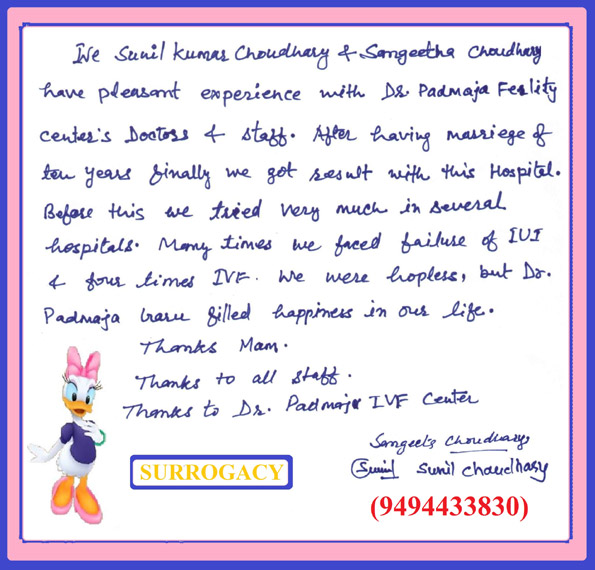 We Sunil Kumar Choudhary & Sangeetha Choudhary
have pleasant experience with Dr. Padmaja Ferlity
center's Doctors & staff. After having marriege of
ten years finally we got result with this Hospital.
Before this we tried very much in several
hospitals. Many times we faced failure of IUI
& four times IVF. We were hopless, but Dr.
Padmaja Garu filled happiness in our life.
Thanks Mam.
Thanks to all staff.
Thanks to Dr. Padmaja IVF Center
Sangeeta Choudhary
Sunil Sunil Chaudhary
SURROGACY
(9494433830)